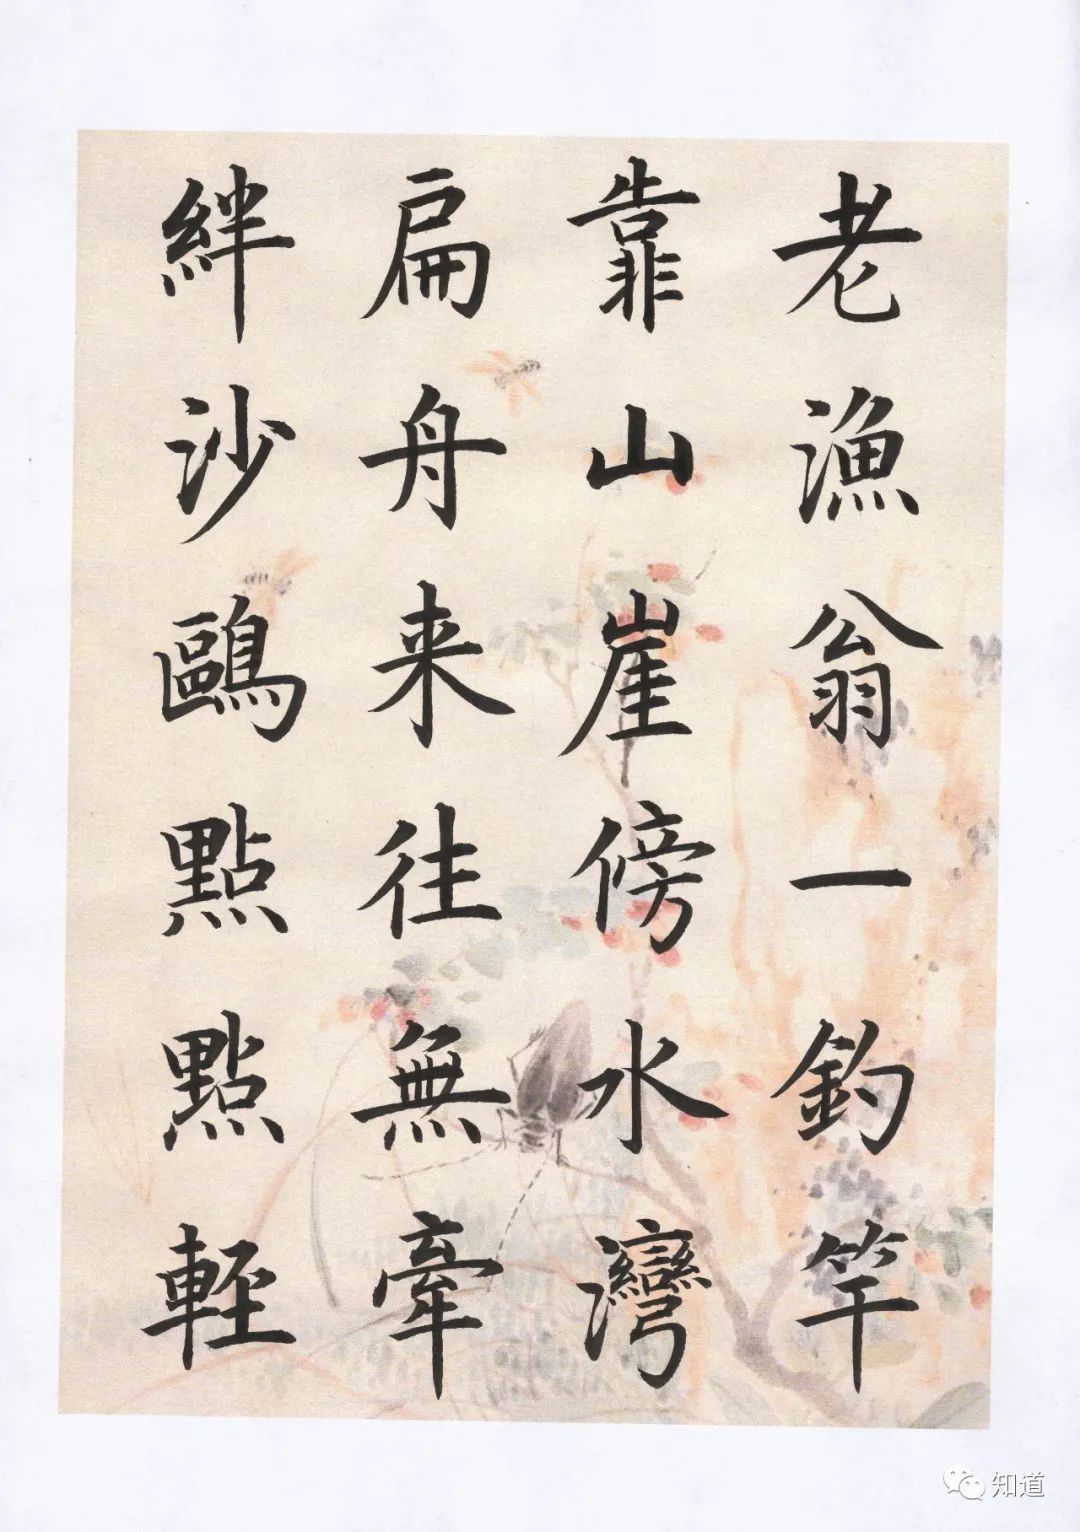 老漁翁一釣竿
靠山崖傍水灣
扁舟来往無牽
絆沙鷗點點輕
知道